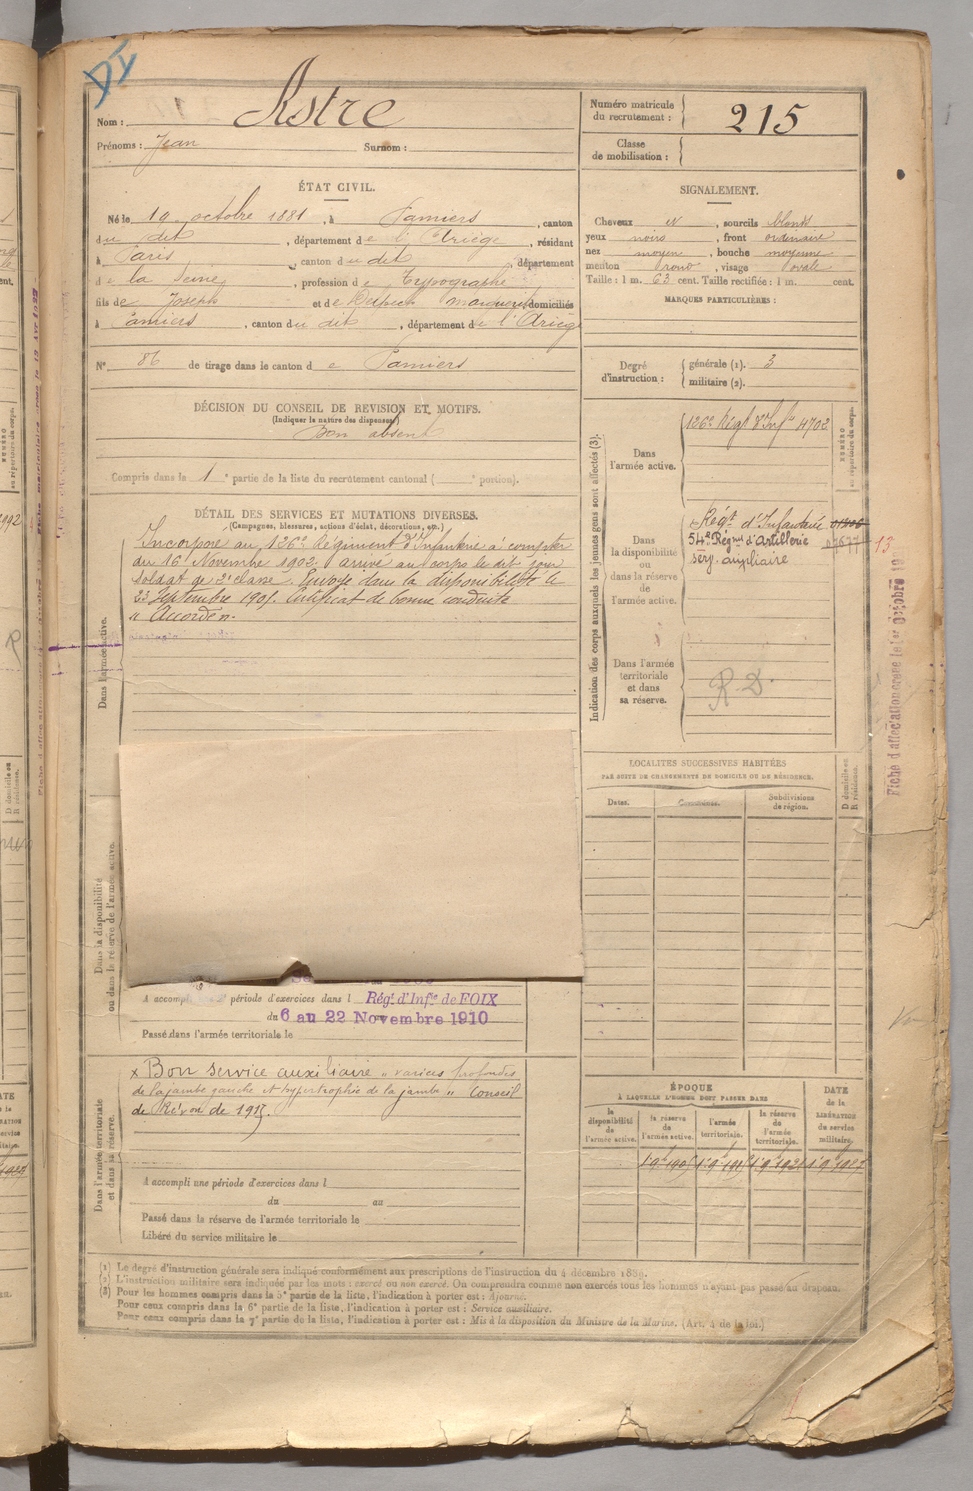 DI
Nom : Astre
Prénoms : Jean Surnom :
Numéro matricule du recrutement : 215
Classe de mobilisation :
ÉTAT CIVIL.
Né le 19 octobre 1881, à Pamiers, canton
du dit, département de l'Ariège, résidant
à Paris, canton du dit, département
de la Seine, profession de Typographe
fils de Joseph et de Marguerite domiciliés
à Pamiers, canton du dit, département de l'Ariège
N° 86 de tirage dans le canton de Pamiers
DÉCISION DU CONSEIL DE REVISION ET MOTIFS.
(Indiquer la nature des dispenses)
Bon absent
Compris dans la 1e partie de la liste du recrutement cantonal ( e portion).
SIGNALEMENT.
Cheveux et, sourcils blonds
yeux noirs, front ordinaire
nez moyen, bouche moyenne
menton rond, visage ovale
Taille : 1 m. 63 cent. Taille rectifiée : 1 m. cent.
MARQUES PARTICULIÈRES :
Degré d'instruction :
générale (1). 3
militaire (2).
DÉTAIL DES SERVICES ET MUTATIONS DIVERSES.
(Campagnes, blessures, actions d'éclat, décorations, etc.)
Dans l'armée active.
Incorporé au 126e Régiment d'Infanterie à compter
du 16 Novembre 1902. arrivé au corps le dit jour
Soldat de 2e classe. Envoyé dans la disponibilité le
23 Septembre 1905. Certificat de bonne conduite
"Accordé".
Indication des corps auxquels les jeunes gens sont affectés (3).
NUMÉRO au répertoire du corps.
Dans l'armée active.
126e Régt d'Infie 4702
Dans la disponibilité ou dans la réserve de l'armée active.
Régt d'Infanterie
54e Régment d'Artillerie
serv. auxiliaire
13
Dans l'armée territoriale et dans sa réserve.
R.D.
LOCALITÉS SUCCESSIVES HABITÉES
PAR SUITE DE CHANGEMENTS DE DOMICILE OU DE RÉSIDENCE.
Dates. Communes. Subdivisions de région. D domicile ou R résidence.
Dans la disponibilité ou dans la réserve de l'armée active.
A accompli période d'exercices dans l Régt d'Infie de FOIX
du 6 au 22 Novembre 1910
Passé dans l'armée territoriale le
Dans l'armée territoriale et dans sa réserve.
x Bon service auxiliaire "varices profondes
de la jambe gauche et hypertrophie de la jambe" Conseil
de Révon de 1915.
A accompli une période d'exercices dans l
du au
Passé dans la réserve de l'armée territoriale le
Libéré du service militaire le
ÉPOQUE
À LAQUELLE L'HOMME DOIT PASSER DANS
DATE de la LIBÉRATION du service militaire.
la disponibilité de l'armée active. la réserve de l'armée active. l'armée territoriale. la réserve de l'armée territoriale.
Fiche d'affectation
(1) Le degré d'instruction générale sera indiqué conformément aux prescriptions de l'instruction du 4 décembre 1889.
(2) L'instruction militaire sera indiquée par les mots : exercé ou non exercé. On comprendra comme non exercés tous les hommes n'ayant pas passé au drapeau.
(3) Pour les hommes compris dans la 5e partie de la liste, l'indication à porter est : Ajourné.
Pour ceux compris dans la 6e partie de la liste, l'indication à porter est : Service auxiliaire.
Pour ceux compris dans la 7e partie de la liste, l'indication à porter est : Mis à la disposition du Ministre de la Marine. (Art. 4 de la loi.)